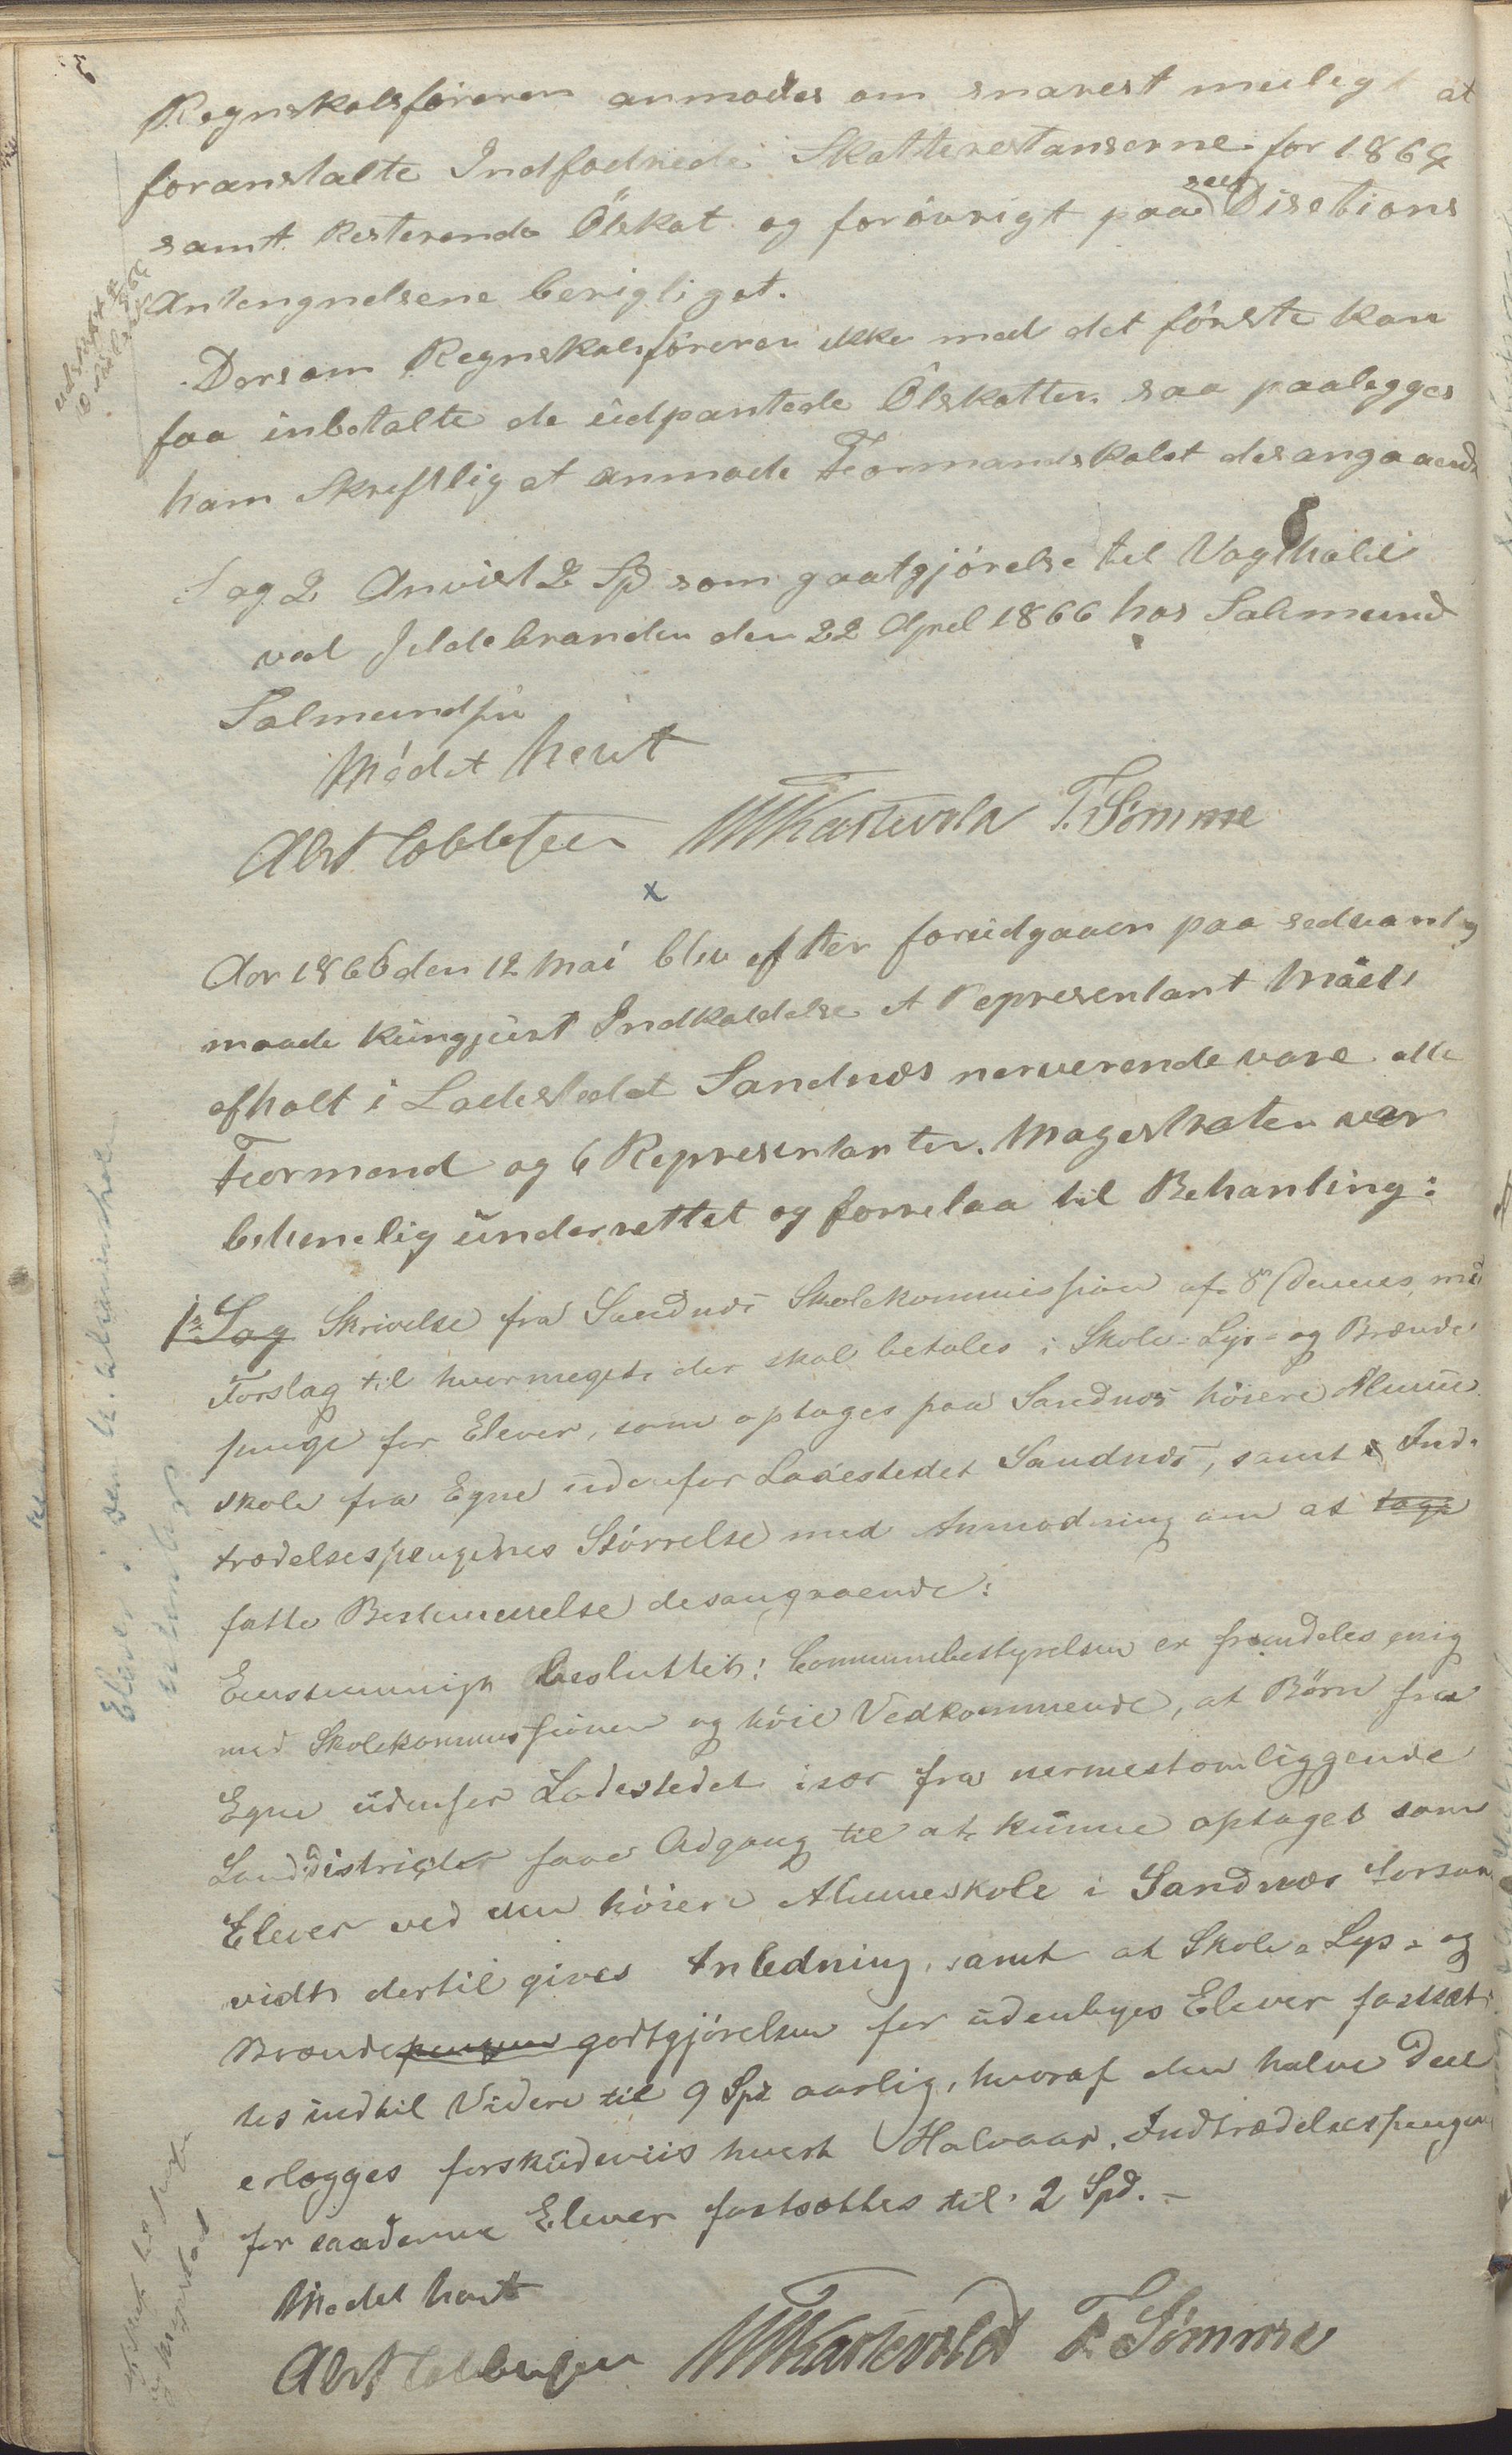 Regnskolsføreren anmodes om snarest muligt at
foranstalte Indfodrede Skatterestanserne for 1864
samt Resterende Ölskat og forövrigt paa see Disetions
Antengnelsene berigliget.
Dersom Regnskolsføreren ikke med det förste kan
faa inbetalte de üdpantede Ölskatter saa paalegges
ham Skriftlig at anmode Formandskabet desangaaend
Sag 2 Anvist 2 Sp som gaatgjörelse til Vagthold
ved Jldebranden den 22 Apel 1866 hos Salemund
Salmundsen
Mödet hevet
T. Sömme
x
Aar 1866 den 12 Mai blev efter forudgaaen paa sedvanlig
maade küngjort Indkaldelse et Representant Möde
afholt i Ladestedet Sandnæs nerverende vare alle
Formend og 6 Representanter. Magestraten var
behørelig ünderrettet og forrelaa til Behanling:
1s Sag Skrivelse fra Sandnæs Skolekommission af 8s Dennes med
Forslag til hvormeget der skal betales i Skole- Lys- og Brænde
penge for Elever, som optages paa Sandnæs höiere Almue
skole fra Egne üdenfor Ladestedet Sandnæs, samt Ind-
trædelsespengenes Störrelse med Anmodning om at tage
fatte Bestemmelse desangaaende:
Eenstemmigh besluttet: Communebestyrelsen er fremdeles enig
med Skolekommissionen og höie Vedkommende, at Börn fra
Egne üdenfor Ladestedet især fra nermestomliggende
Landdistrigter faae Adgang til at künne optages som
Elever ved den höiere Almueskole i Sandnæs forsaa
vidt dertil gives Anledning, samt at Skole- Lys- og
Brændepengene godtgjörelsen for üdenbyes Elever fastsæt-
tes indtil Videre til 9 Spd aarlig, hvoraf den halve Deel
erlægges forskudsviis hvert Halvaar. Indtrædelsespengene
for saadanne Elever fastsættes til 2 Spd. -
Mødet hævet
T. Sömme